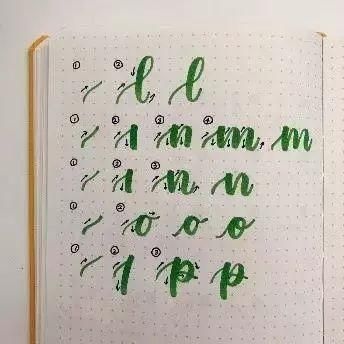 ① ② l l
① ② ③ ④ n m m
① ② ③ n n
① ② o o o
① ② ③ p p